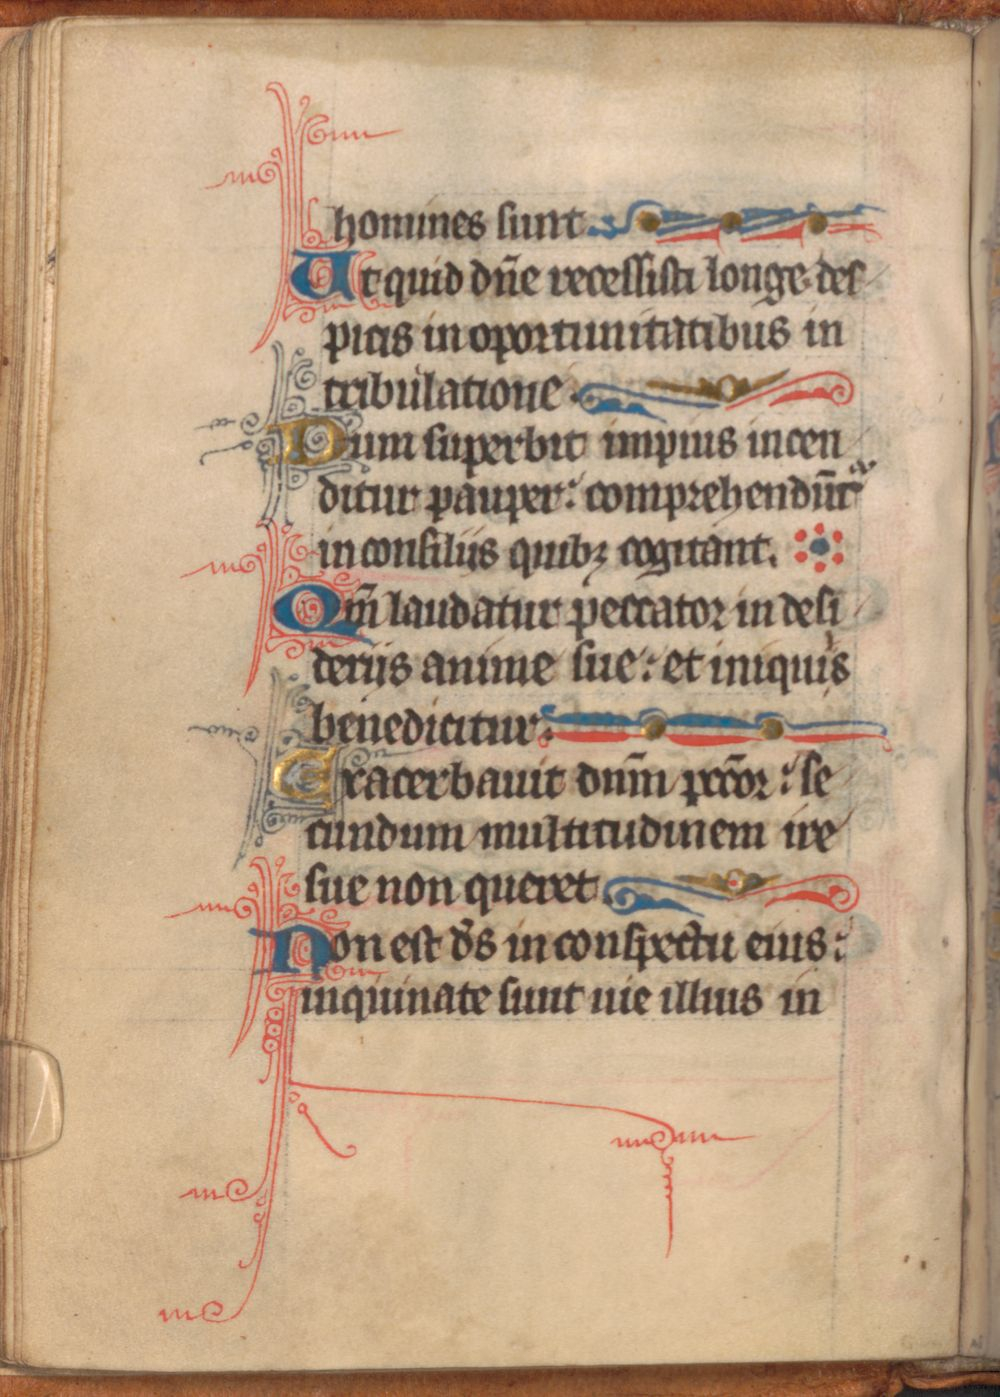 homines sunt.
Ut quid dn̄e recessisti longe des
picis in oportunitatibus in
tribulatione.
Dum superbit impius incen
ditur pauper: comprehendūt᷑
in consiliis quibꝫ cogitant.
Qm̄ laudatur peccator in desi
deriis anime sue: et iniquus
benedicitur.
Exacerbauit dn̄m pcc̄or: se
cundum multitudinem ire
sue non queret.
Non est d̄s in conspectu eius:
inquinate sunt uie illius in